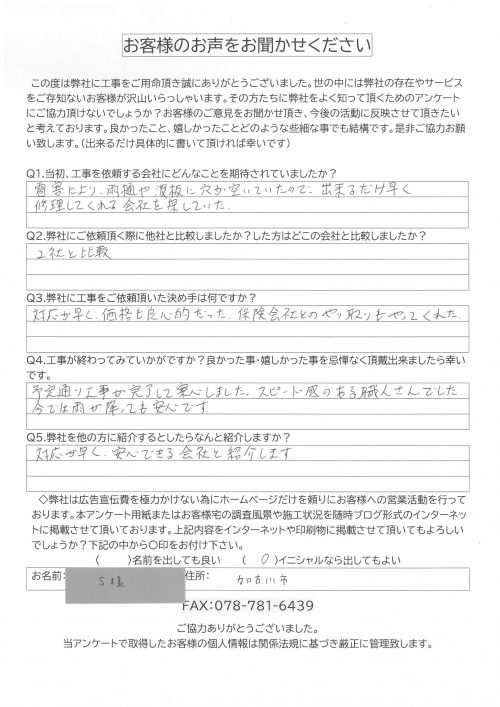 お客様のお声をお聞かせください
この度は弊社に工事をご用命頂き誠にありがとうございました。世の中には弊社の存在やサービス
をご存知ないお客様が沢山いらっしゃいます。その方たちに弊社をよく知って頂くためのアンケート
にご協力頂けないでしょうか?お客様のご意見をお聞かせ頂き、今後の活動に反映させて頂きたい
と考えております。良かったこと、嬉しかったことどのような些細な事でも結構です。是非ご協力お願
い致します。(出来るだけ具体的に書いて頂ければ幸いです)
Q1.当初、工事を依頼する会社にどんなことを期待されていましたか?
雹害により、雨樋や波板に穴が空いていたので、出来るだけ早く
修理してくれる会社を探していた。
Q2.弊社にご依頼頂く際に他社と比較しましたか?した方はどこの会社と比較しましたか?
2社と比較
Q3.弊社に工事をご依頼頂いた決め手は何ですか?
対応が早く、価格も良心的だった。保険会社とのやり取りもやってくれた。
Q4.工事が終わってみていかがですか?良かった事・嬉しかった事を忌憚なく頂戴出来ましたら幸い
です。
予定通り工事が完了して安心しました。スピード感のある職人さんでした。
今では雨が降っても安心です。
Q5.弊社を他の方に紹介するとしたらなんと紹介しますか?
対応が早く、安心できる会社と紹介します
◇弊社は広告宣伝費を極力かけない為にホームページだけを頼りにお客様への営業活動を行って
おります。本アンケート用紙またはお客様宅の調査風景や施工状況を随時ブログ形式のインターネッ
トに掲載させて頂いております。上記内容をインターネットや印刷物に掲載させて頂いてもよろしい
でしょうか?下記の中から〇印をお付け下さい。
( )名前を出しても良い ( 〇 )イニシャルなら出してもよい
お名前: S様 住所: 加古川市
FAX:078-781-6439
ご協力ありがとうございました。
当アンケートで取得したお客様の個人情報は関係法規に基づき厳正に管理致します。